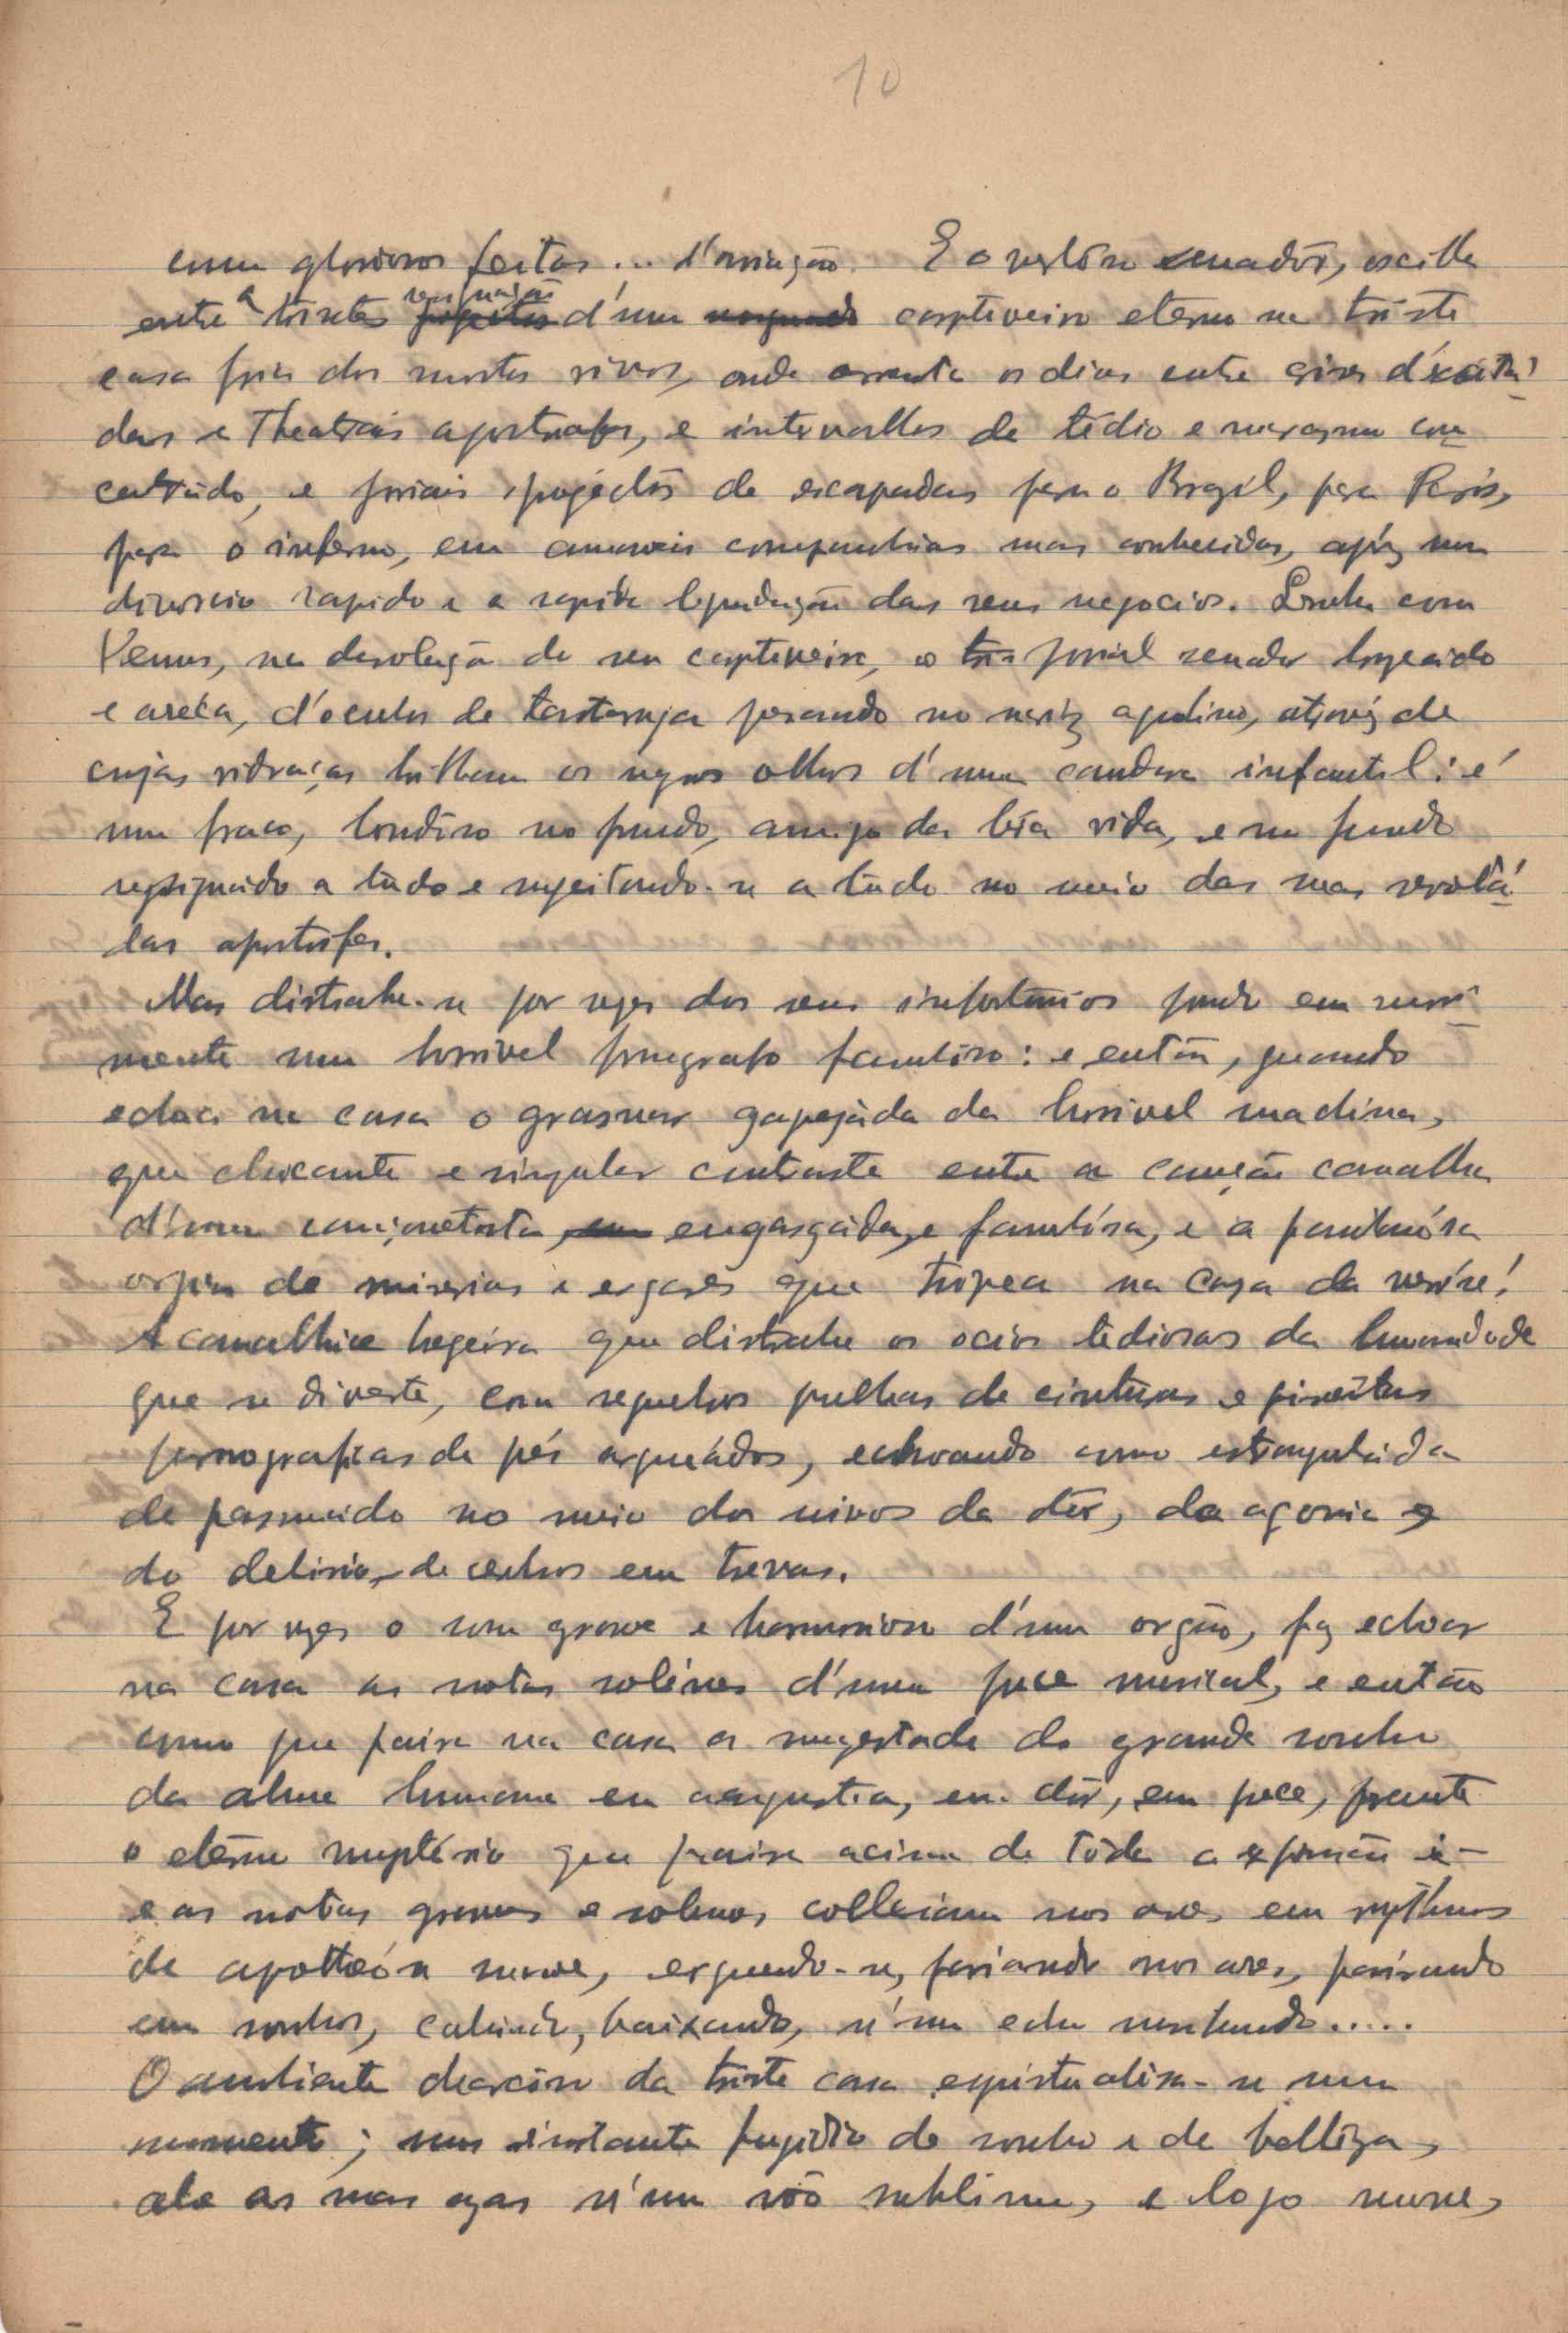 10
com gloriosos feitos ... d'arriação. E o vistôso senador, oscilla
entre a tristes resignação d'um captiveiro eterno na triste
casa fria dos mortos vivos, onde arrasta os dias entre crises d'exaltá-
das e theatrais apostrofes, e intervallos de tédio e marasmo con
centrádo, e joviais projéctos de escapadas para o Brazil, para Paris,
para o inferno, em amaveis companhias mas conhecidas, após um
divorcio rapido e a rapida liquidação dos seus negocios. Sonha com
Venus, na desolação do seu captiveiro, o jovial senador
e d'oculos de tartaruga pousando no nariz aquilino, através de
cujas vidraças brilham os negros olhos d'uma candura infantil: é
um fraco, bondôso no fundo, amigo da bôa vida, e no fundo
resignado a tudo e sugeitando-se a tudo no meio das suas revoltá-
das apostrofes.
Mas distrahe-se por vezes dos seus infortunios pondo em movi-
mento um horrivel fonografo fanhôso: e então, quando
echôa na casa o grasnar da horrivel machina,
que chocante e singular contraste entre a canção canalha
d'uma cançonetista, engasgada, e fanhósa, e a
orgia de miserias e que tripea na casa da
A canalhice bregeira que distrahe os ocios tediosos da humanidade
que se diverte, com requebros pulhas de cinturas e piruêtas
pornograficas de pés arqueádos, echoando como estrangulada
de pasmada no meio dos uivos da dôr, da agonia e
do delirio, de cerebros em trevas.
E por vezes o som grave e harmonioso d'um orgão, faz echoar
na casa as notas solénes d'uma prece musical, e então
como que paira na casa a magestade do grande sonho
da alma humana em angustia, em dôr, em prece, perante
o etérno mystério que paira acima de tôda a
e as notas graves e solenes colleiam nos ares em rythmos
de apothéose suave, erguendo-se, pairando nos ares, pairando
em sonhos, cahindo, baixando, n'um echo .....
O ambiente da triste casa espiritualisa-se um
momento; um instante fugidio de sonho e de belleza,
abre as suas azas n'um vôo sublime, e logo morre,